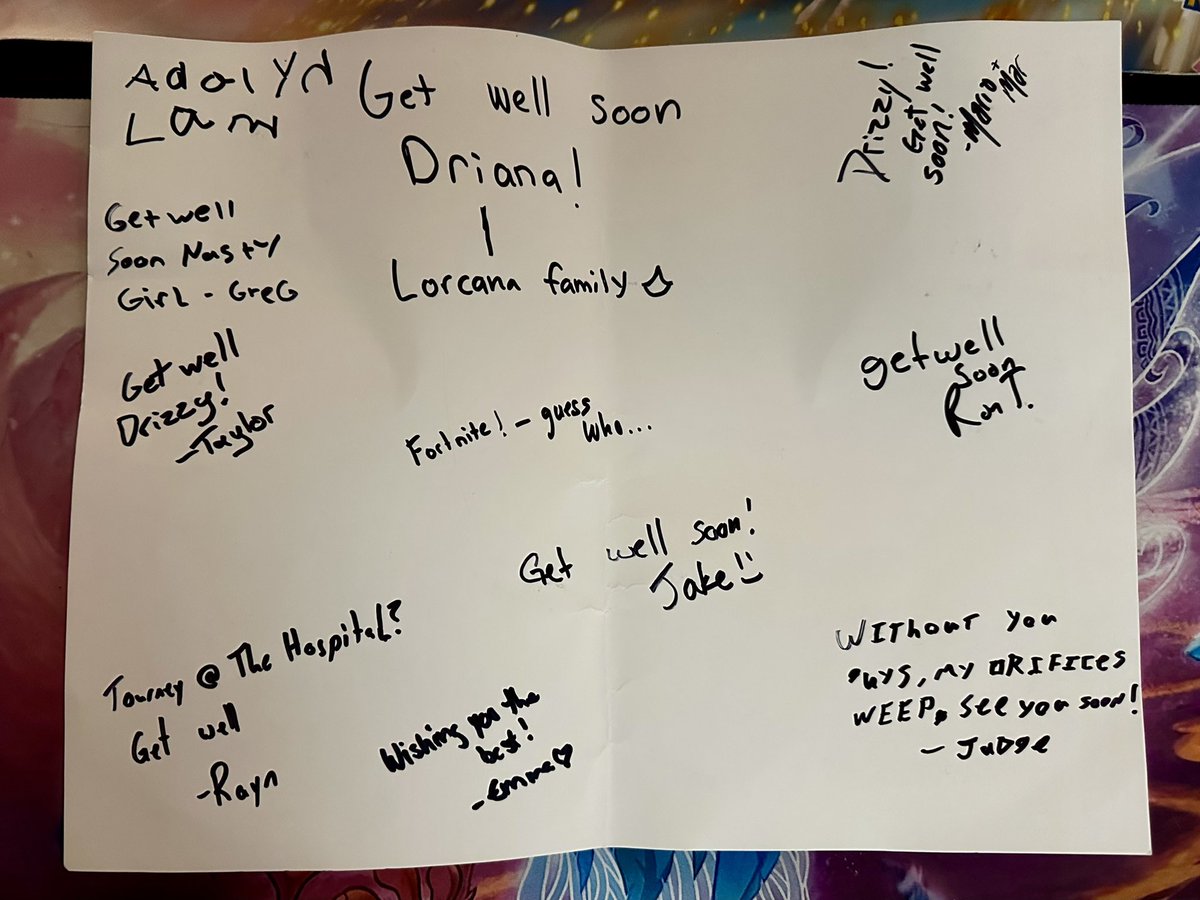 Adalyn
Lam
Get well soon
Driana!
Lorcana family
Drizzy!
Get well
soon!
-Mario +
Mar
Get well
Soon Nasty
Girl - Greg
Get well
Drizzy!
-Taylor
Fortnite! - guess
who...
get well
soon
Get well soon!
Jake
Tourney @ The Hospital?
Get well
-Rayn
Wishing you the
best!
-Emma♡
WITHOUT YOU
GUYS, MY ORIFICES
WEEP, SEE YOU SOON!
- JUDGE